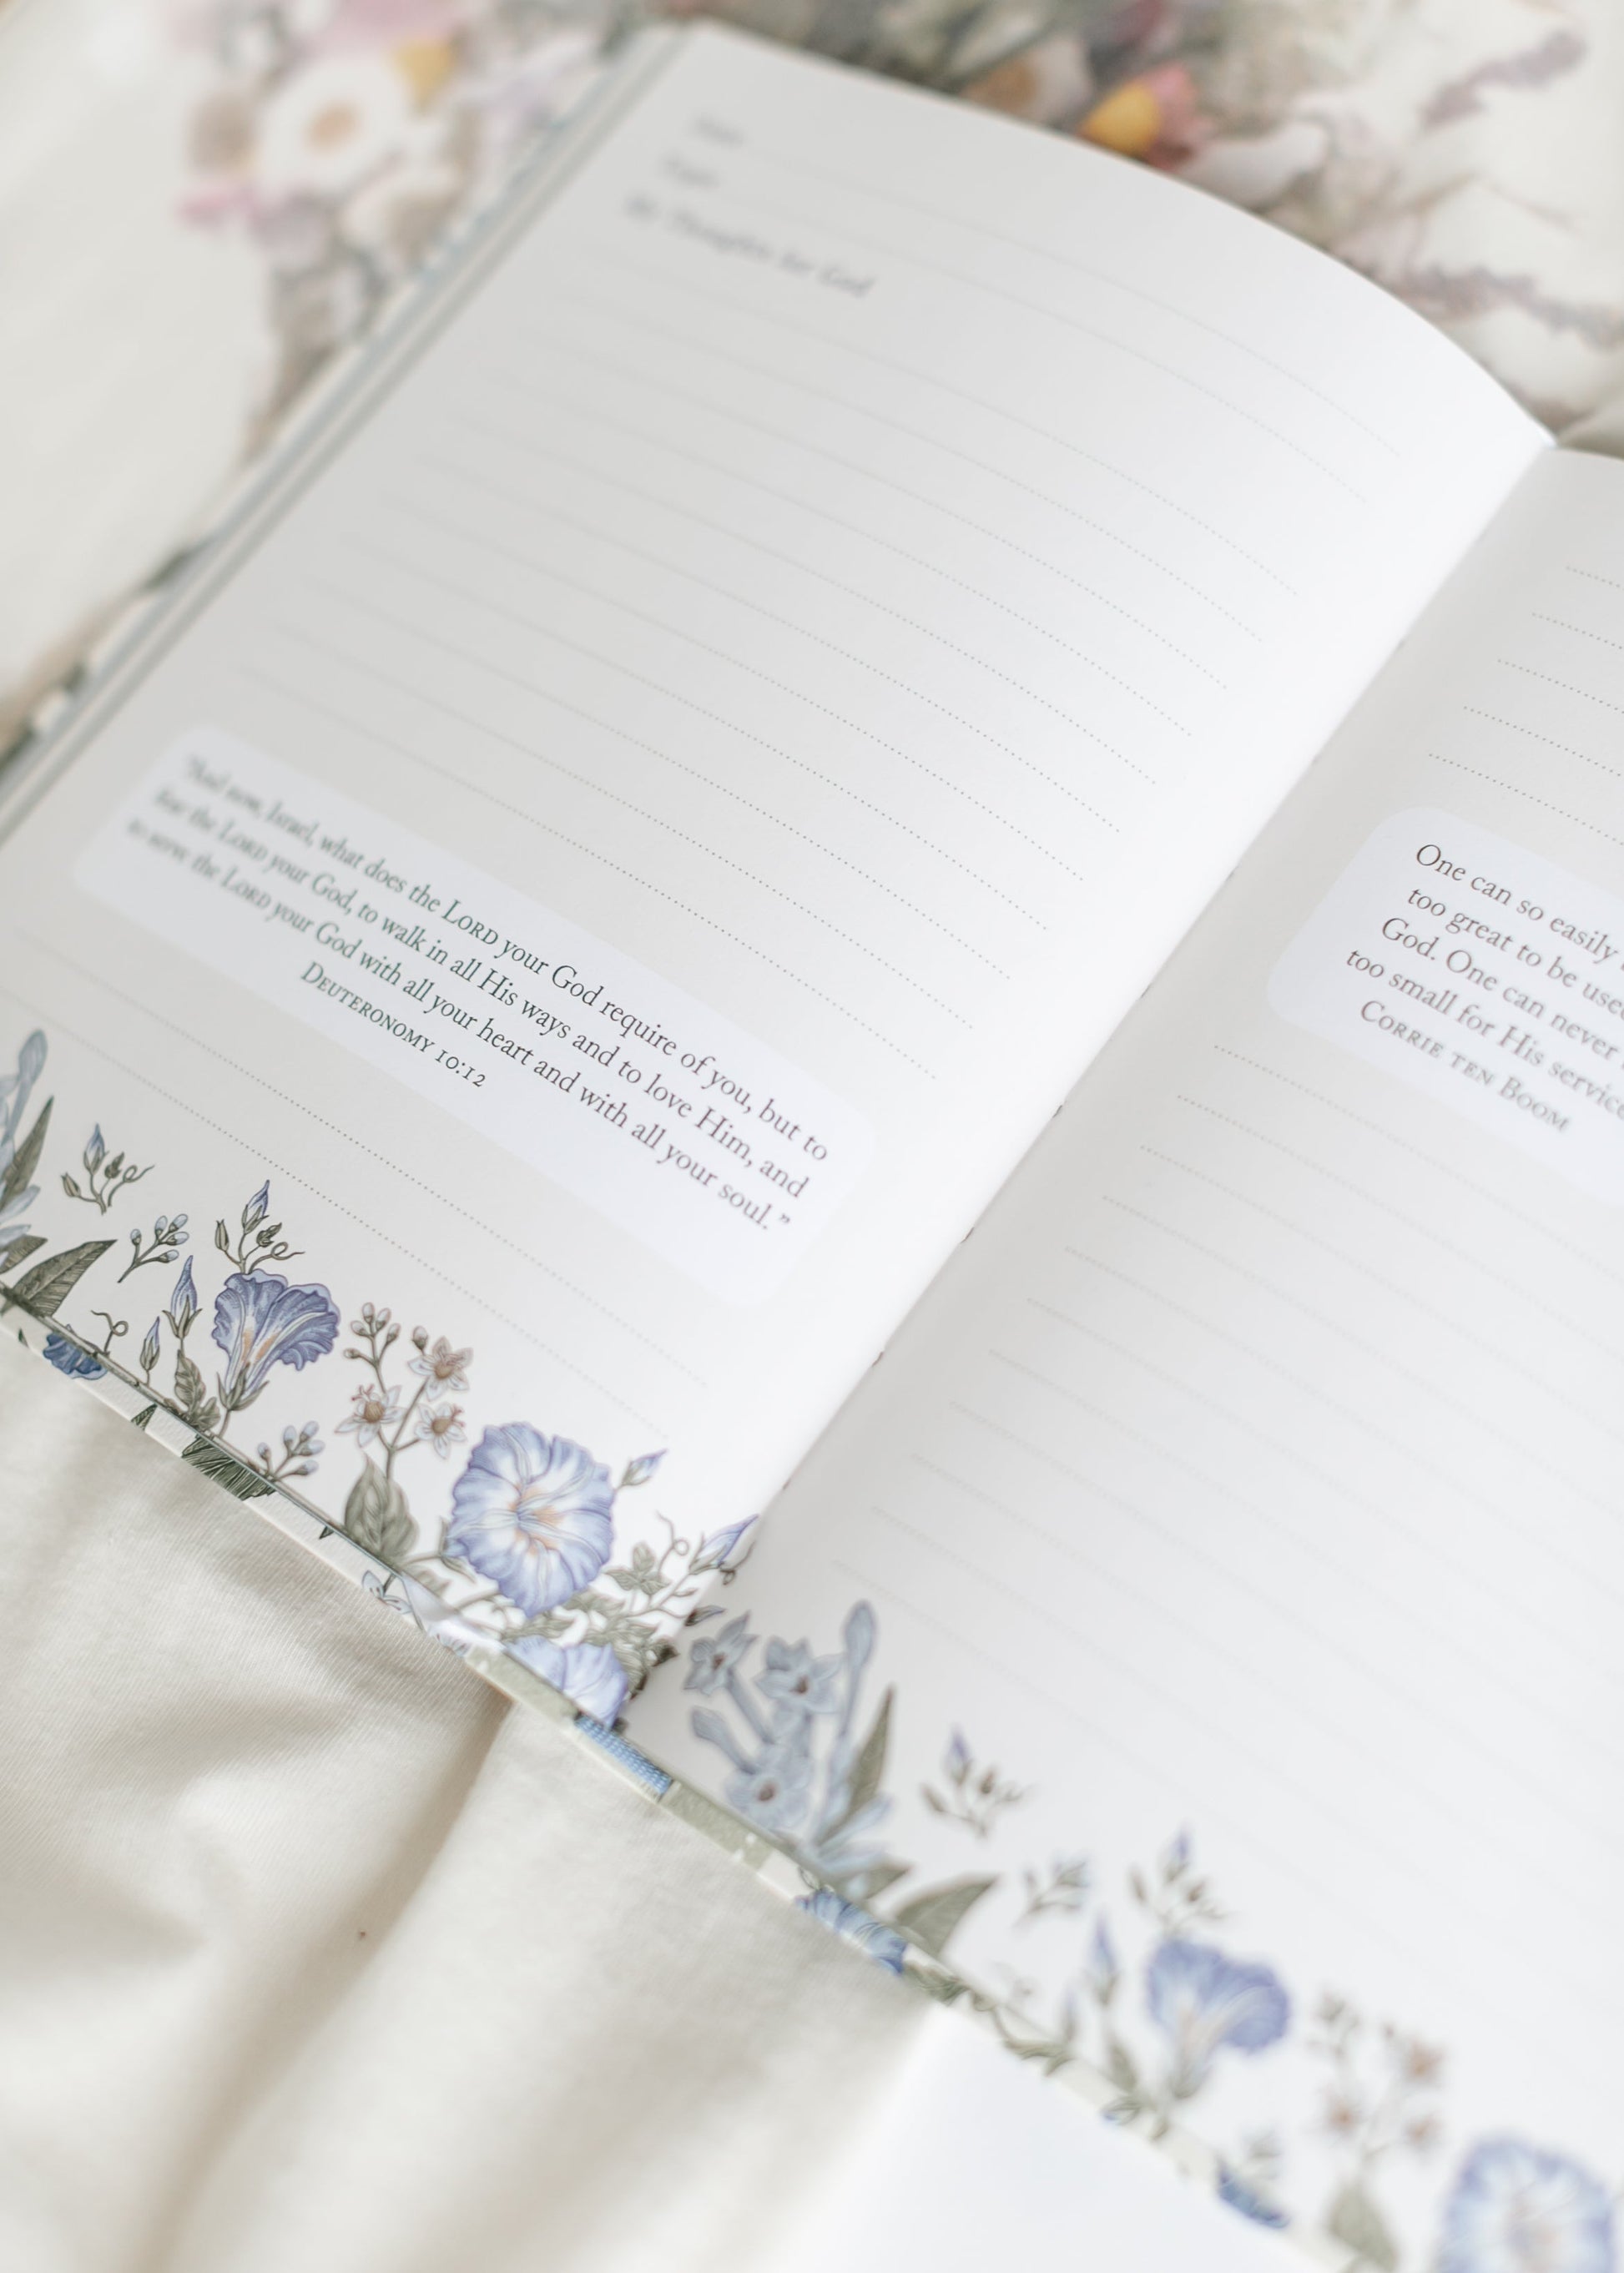 Thoughts for God
"And now, Israel, what does the LORD your God require of you, but to
fear the LORD your God, to walk in all His ways and to love Him, and
to serve the LORD your God with all your heart and with all your soul."
DEUTERONOMY 10:12
One can so easily
too great to be used
God. One can never
too small for His service
CORRIE TEN BOOM